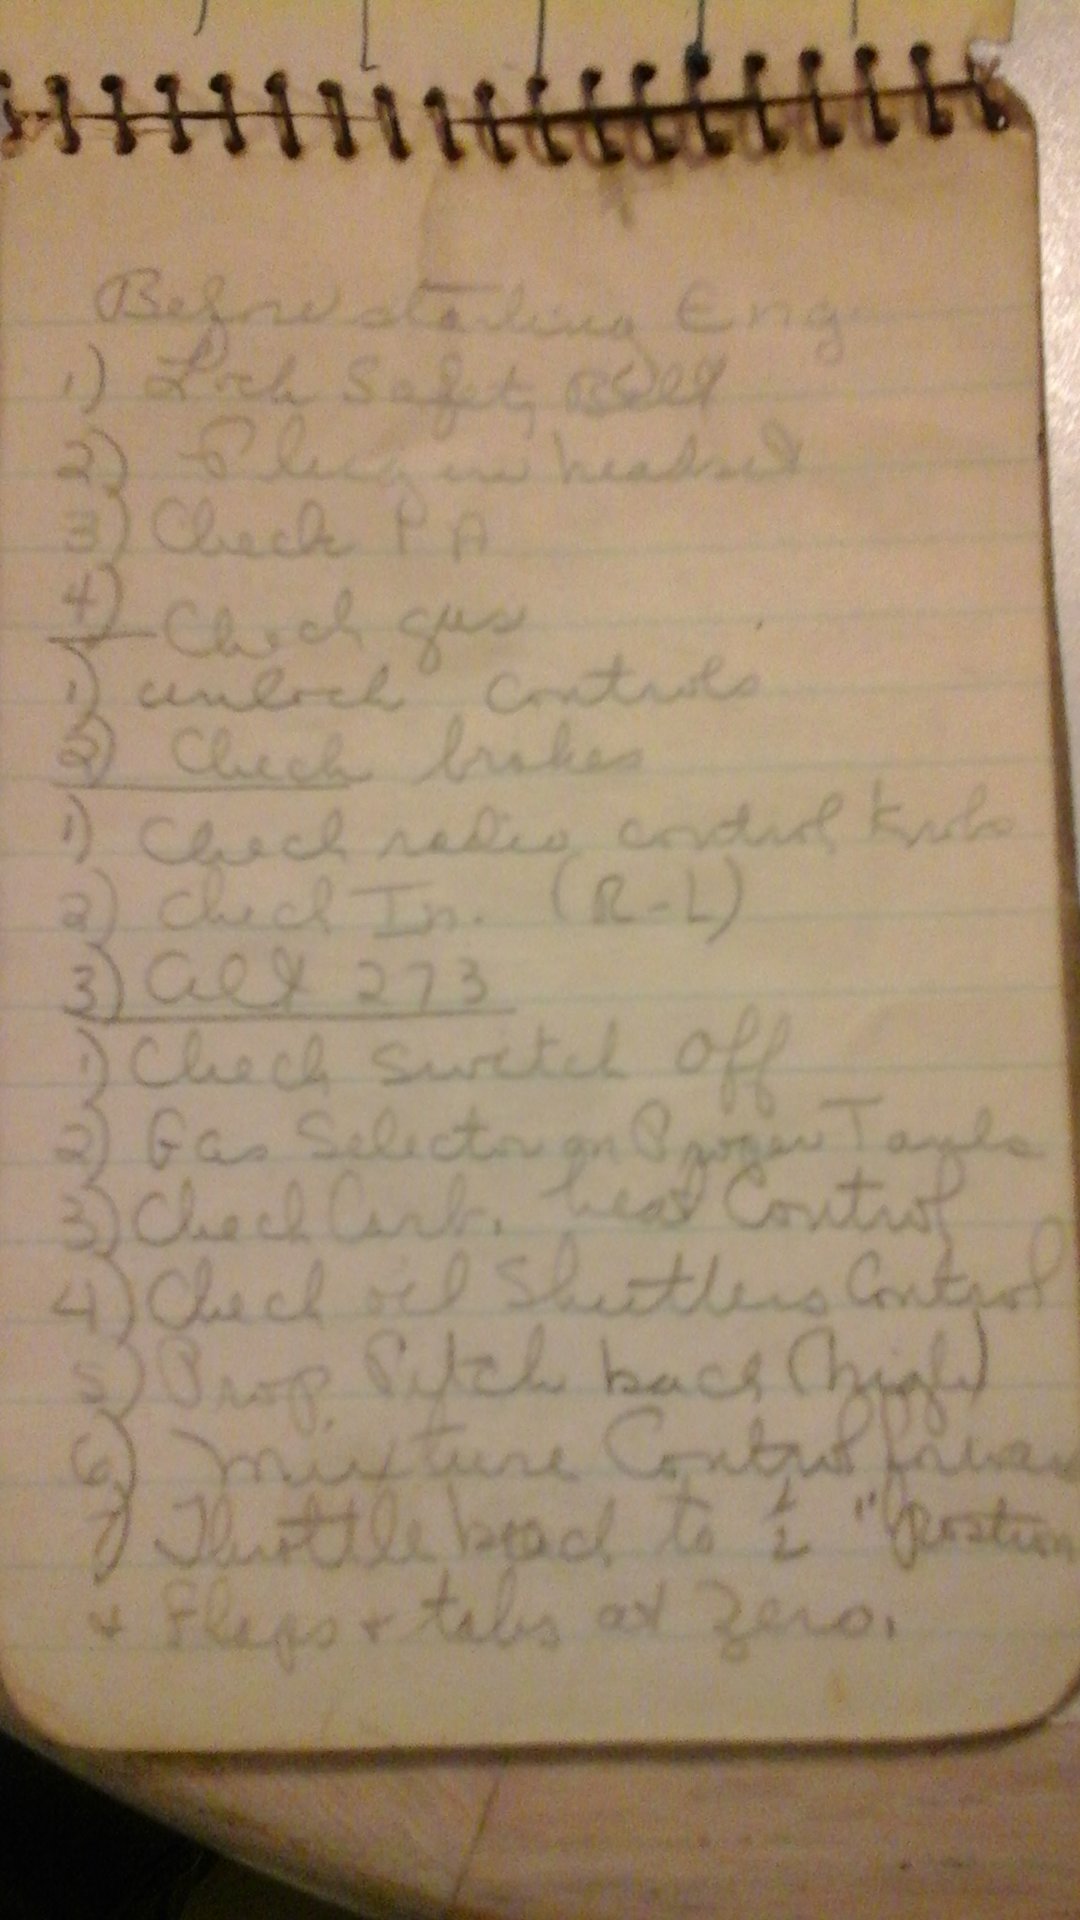 Before starting Eng
1) Lock Safety Belt
2) Plug in headset
3) Check P A
4) Check gas
1) unlock controls
2) Check brakes
1) Check radio control knobs
2) Check In. (R-L)
3) Alt 273
1) Check switch Off
2) Gas Selector on Proper Tanks
3) Check Carb. heat Control
4) Check oil Shutters Control
5) Prop. Pitch back (high)
6) Mixture Control forwar
7) Throttle back to 1/2 " Position
+ Flaps + tabs at Zero.